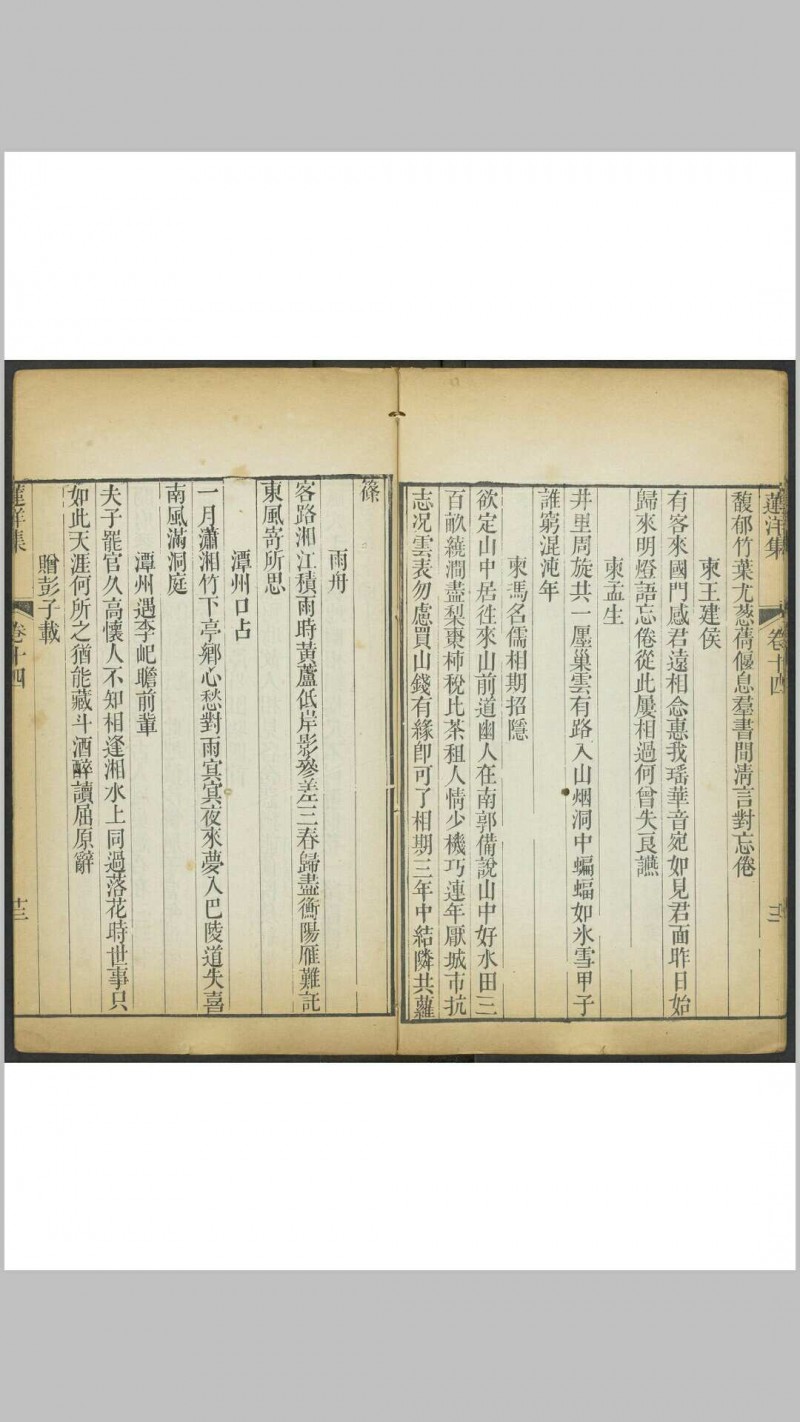 蓮洋集
卷十四
馥郁竹葉尤蔥蒨偃息羣書間清言對忘倦
柬王建侯
有客來國門感君遠相念惠我瑤華音宛如見君面昨日始
歸來明燈語忘倦從此屢相過何曾失良讌
柬孟生
井里周旋共一廛巢雲有路入山烟洞中蝙蝠如氷雪甲子
誰窮混沌年
柬馮名儒相期招隱
欲定山中居徃來山前道幽人在南郭備說山中好水田三
百畝繞澗盡梨棗柿稅比茶租人情少機巧連年厭城市抗
志况雲表勿慮買山錢有緣卽可了相期三年中結隣共蘿
篠
雨舟
客路湘江積雨時黃蘆低岸影參差三春歸盡衡陽雁難託
東風寄所思
潭州口占
一月瀟湘竹下亭鄉心愁對雨寞寞夜來夢入巴陵道失喜
南風滿洞庭
潭州遇李屺瞻前輩
夫子罷官久高懷人不知相逢湘水上同過落花時世事只
如此天涯何所之猶能藏斗酒醉讀屈原辭
贈彭子載
蓮洋集
卷十四